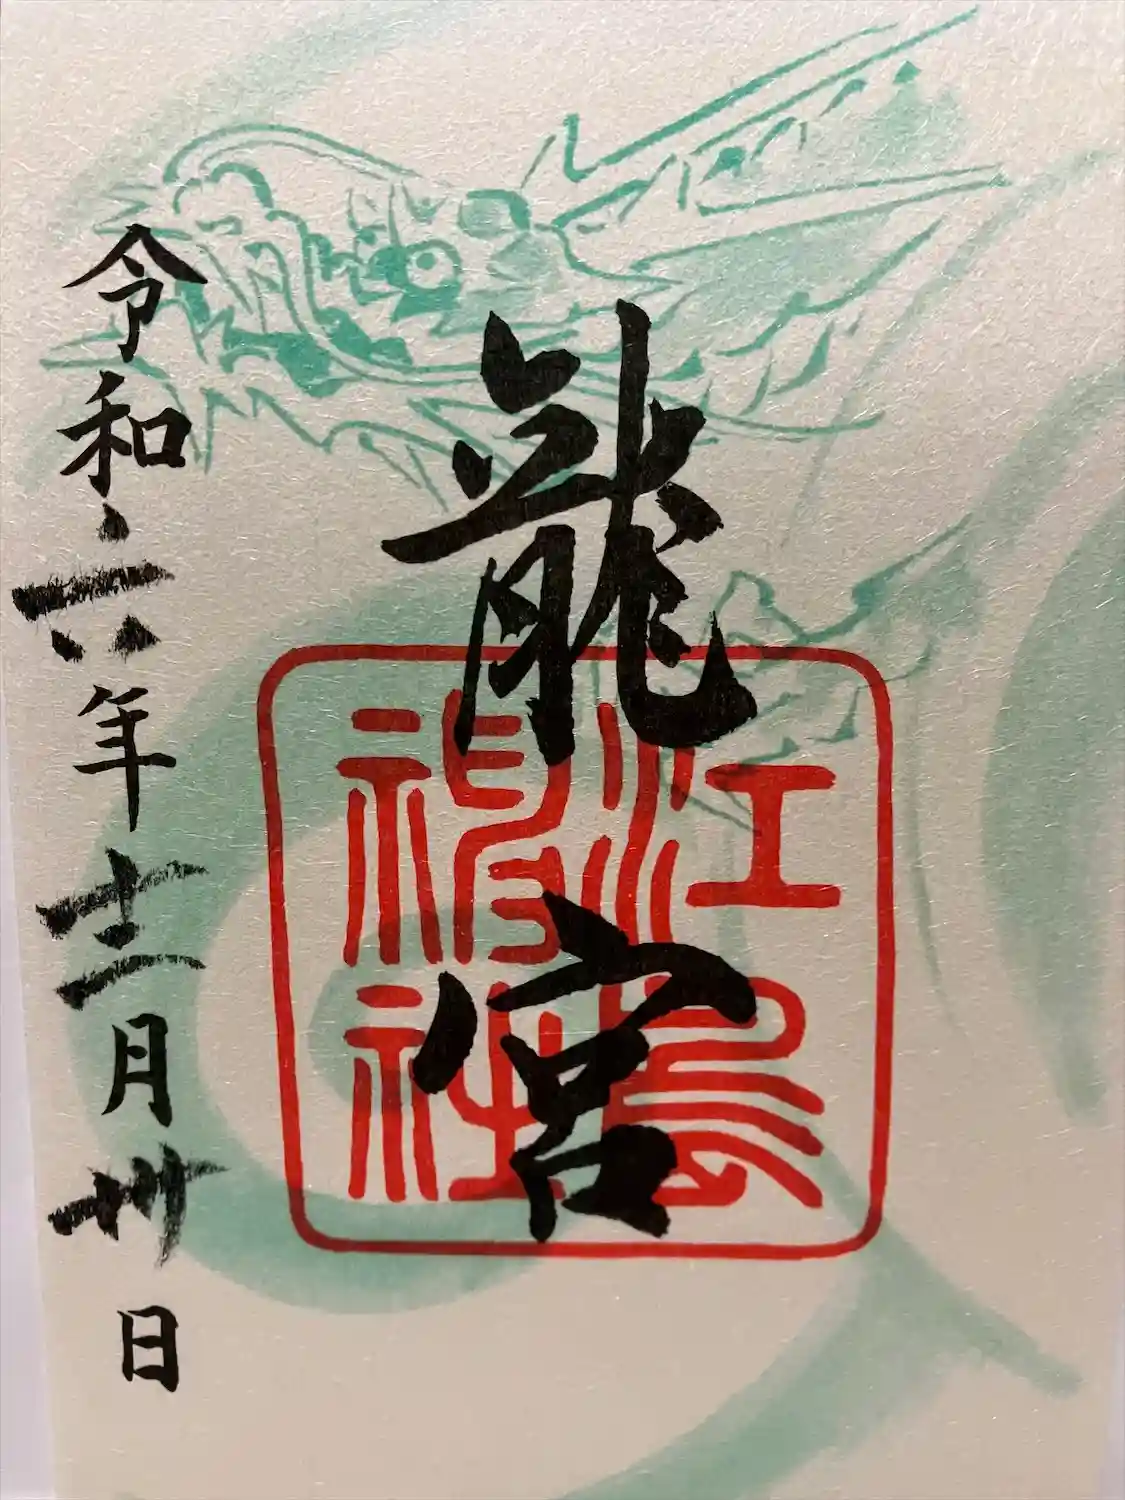 龍宮
江島神社
令和六年十二月卅日